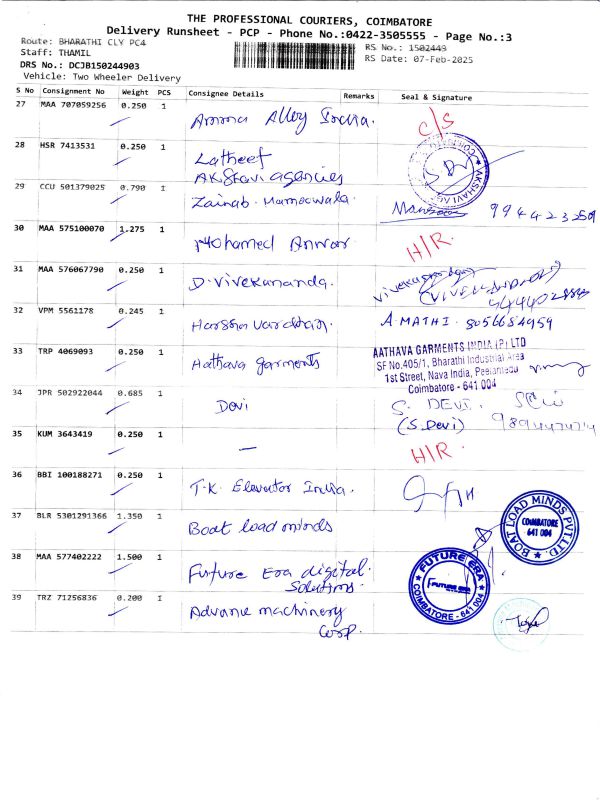 THE PROFESSIONAL COURIERS, COIMBATORE
Delivery Runsheet - PCP - Phone No.:0422-3505555 - Page No.:3
Route: BHARATHI CLY PC4
RS No.: 1502449
Staff: THAMIL
RS Date: 07-Feb-2025
DRS No.: DCJB150244903
Vehicle: Two Wheeler Delivery
S No Consignment No Weight PCS Consignee Details Remarks Seal & Signature
27 MAA 707059256 0.250 1 Amma Alloy India. C/S
28 HSR 7413531 0.250 1 Latheef
AKshavi agencies
29 CCU 501379025 0.790 1 Zainab. Mamoowala.
30 MAA 575100070 1.275 1 Mohamed Anwar H/R.
31 MAA 576067790 0.250 1 D. Vivekananda.
32 VPM 5561178 0.245 1 Harsha vardhan. A.MATHI. 8056684959
33 TRP 4069093 0.250 1 Hathava garments
AATHAVA GARMENTS INDIA (P) LTD
SF No.405/1, Bharathi Industrial Area
1st Street, Nava India, Peelamedu
Coimbatore - 641 004
34 JPR 502922044 0.685 1 Devi S. DEVI.
(S.Devi)
35 KUM 3643419 0.250 1 — H/R.
36 BBI 100188271 0.250 1 T.K. Elevator India.
37 BLR 5301291366 1.350 1 Boat load minds
BOAT LOAD MINDS PVT LTD
COIMBATORE
641 004
38 MAA 577402222 1.500 1 Future Era digital
Solutions.
FUTURE ERA
FUTURE ERA
COIMBATORE - 641 004
39 TRZ 71256836 0.200 1 Advance machinery
Corp.